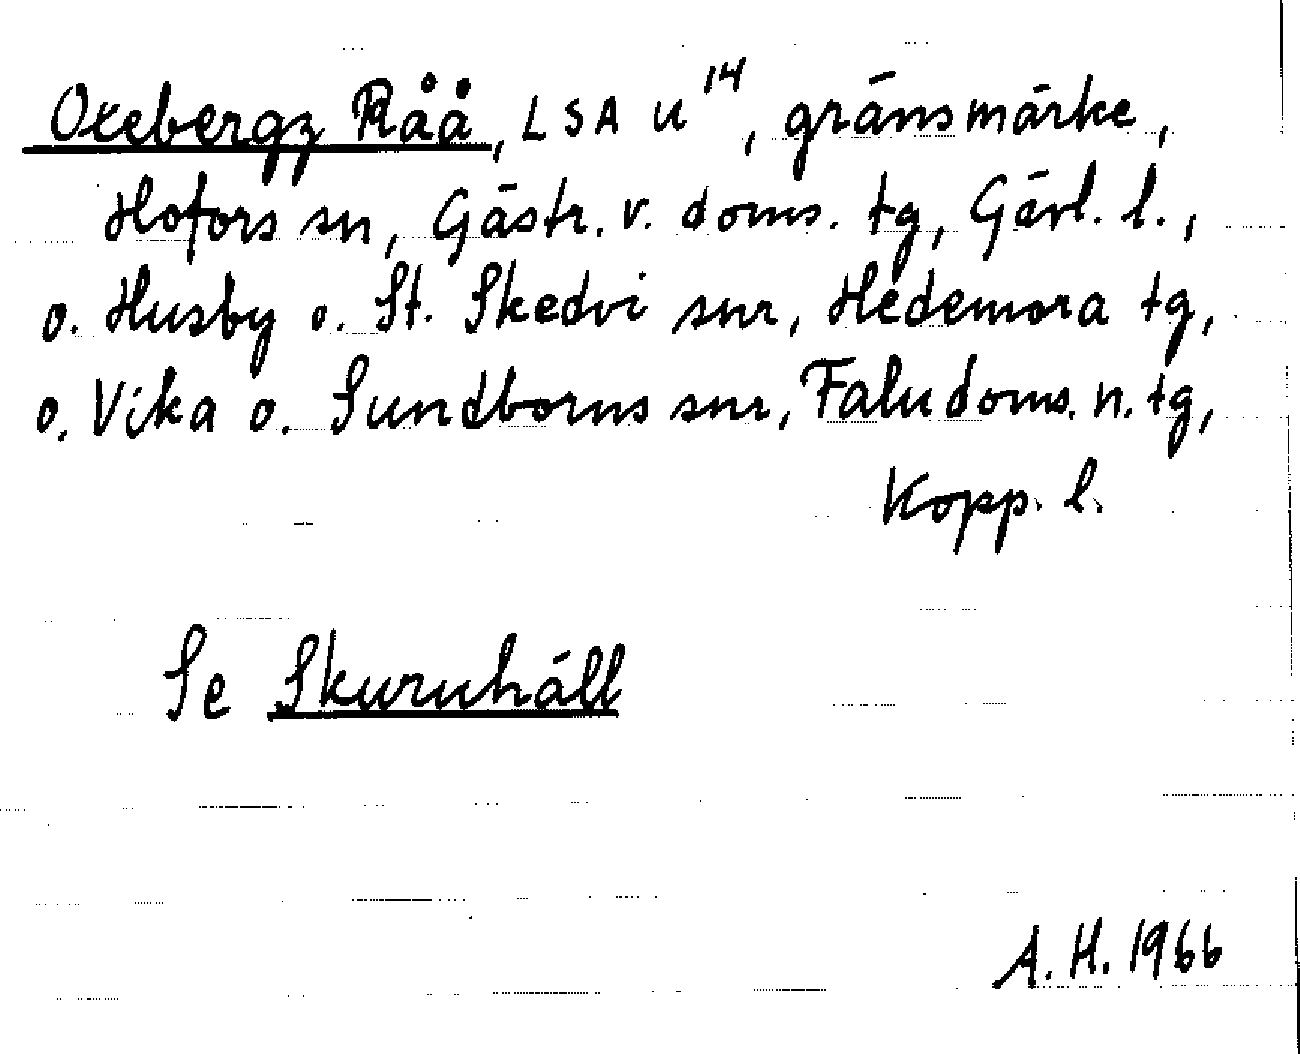 Oxebergz Råå, LSA U 14, gränsmärke,
Hofors sn, Gästr. v. doms. tg, Gävl. l.,
o. Husby o. St. Skedvi snr, Hedemora tg,
o. Vika o. Sundborns snr, Falu doms. n. tg,
Kopp. l.
Se Skuruhäll
A. H. 1966